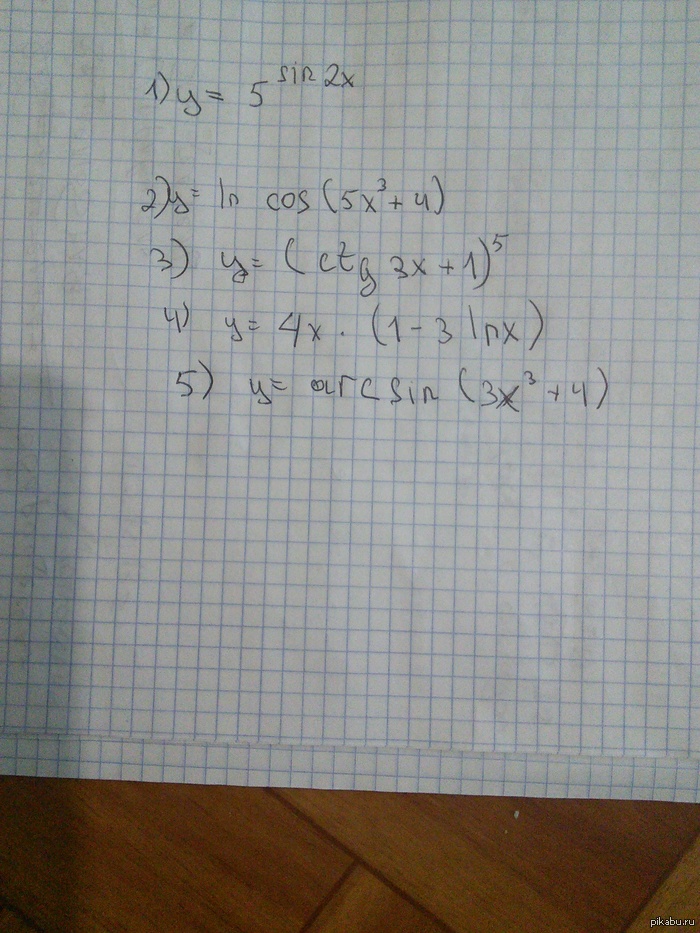 1) y = 5^sin 2x
2) y = ln cos (5x³ + 4)
3) y = (ctg 3x + 1)⁵
4) y = 4x · (1 - 3 lnx)
5) y = arcsin (3x³ + 4)
pikabu.ru